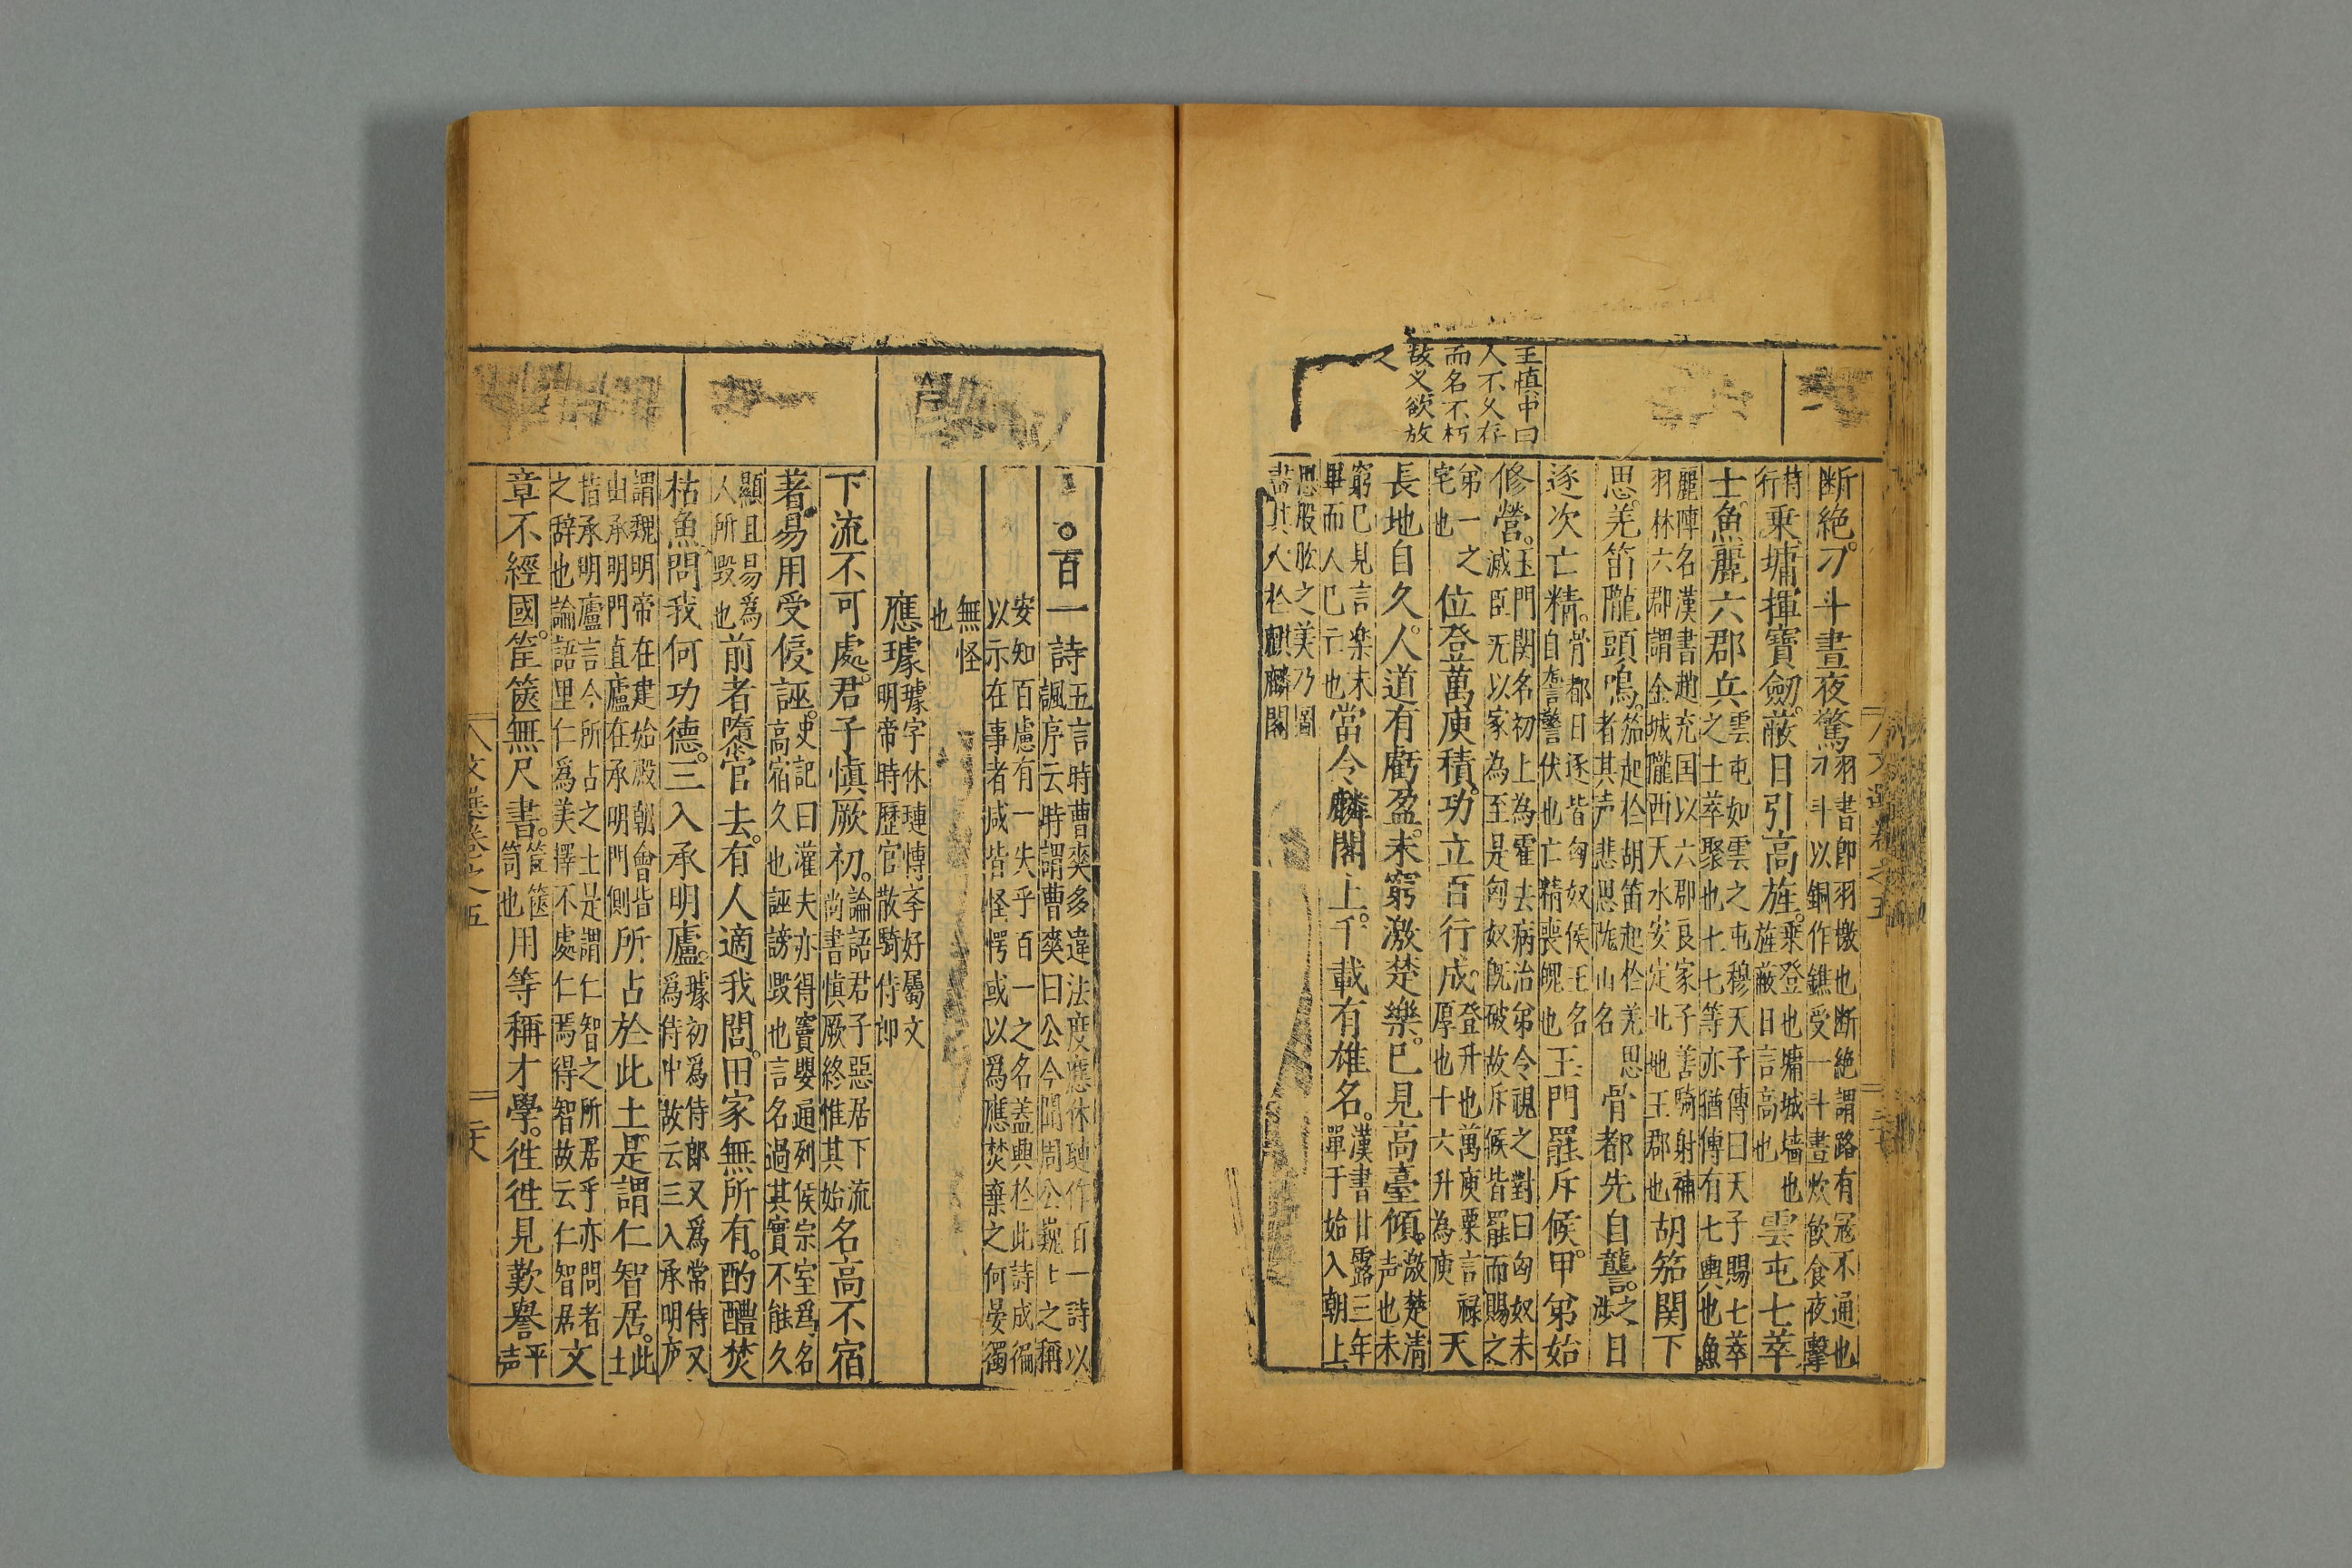 王慎中曰
人不久存
而名不朽
故又欲放
之
断絶刁斗晝夜驚羽書即羽檄也断絶謂路有冦不通也刁斗以銅作鐎受一斗晝炊飲食夜擊
持行乗墉揮寶劔蔽日引高旌乗登也墉城墙也旌蔽日言高也雲屯七萃
士魚麗六郡兵雲屯如雲之屯穆天子傳曰天子賜七萃之士萃聚也七七等亦猶傳有七輿也魚
麗陣名漢書趙充国以六郡良家子善騎射補羽林六郡謂金城隴西天水安定北地王郡也胡笳関下
思羌笛隴頭鳴笳起於胡笛起於羌思者其声悲思隴山名骨都先自讋日
逐次亡精骨都日逐皆匈奴侯王名自讋警伏也亡精喪魄也玉門罷斥候甲第始
修營玉門関名初上為霍去病治第令視之對曰匈奴未滅臣无以家為至是匈奴既破故斥候皆罷而賜之
第一之宅也位登萬庾積功立百行成登升也萬庾粟言禄厚也十六升為庾天
長地自久人道有虧盈未窮激楚樂已見高臺傾激楚清声也未
窮已見言楽未畢而人已亡也當令麟閣上千載有雄名漢書甘露三年單于始入朝上
思股肱之美乃圖畫其人於麒麟閣
文選卷之五
百一詩五言時曹爽多違法度應休璉作百一詩以諷序云時謂曹爽曰公今聞周公巍巍之稱
安知百慮有一失乎百一之名盖興於此詩成徧以示在事者咸皆怪愕或以爲應焚棄之何晏獨
無怪也
應璩璩字休璉愽斈好屬文明帝時歷官散騎侍郎
下流不可處君子慎厥初論語君子惡居下流尚書慎厥終惟其始名高不宿
著易用受侵誣史記曰灌夫亦得竇嬰通列候宗室爲名高宿久也誣謗毁也言名過其實不能久
顯且易爲人所毁也前者隳官去有人適我閭田家無所有酌醴焚
枯魚問我何功德三入承明廬璩初爲侍郎又爲常侍又爲侍中故云三入承明庐
謂魏明帝在建始殿朝會皆由承明門直廬在承明門側所占於此土是謂仁智居此土
指承明廬言今所占之土是謂仁智之所居乎亦問者之辞也論語里仁爲美擇不處仁焉得智故云仁智居文
章不經國筐篋無尺書筐篋笥也用等稱才學徃徃見歎譽平声
文選卷之五